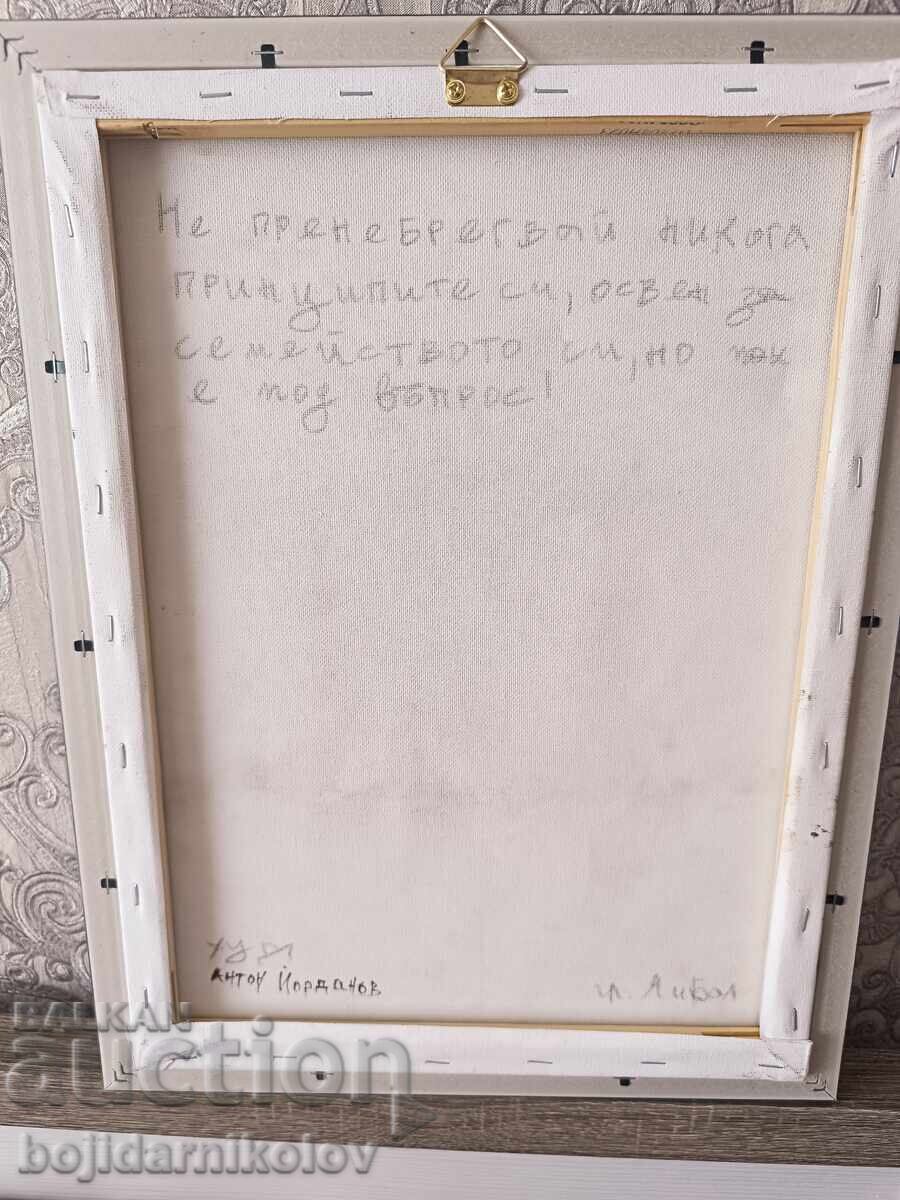 Не пренебрегвай никога
принципите си, освен за
семейството си, но пак
е под въпрос!
Антон Йорданов
гр.
BALKAN
auction
bojidarnikolov